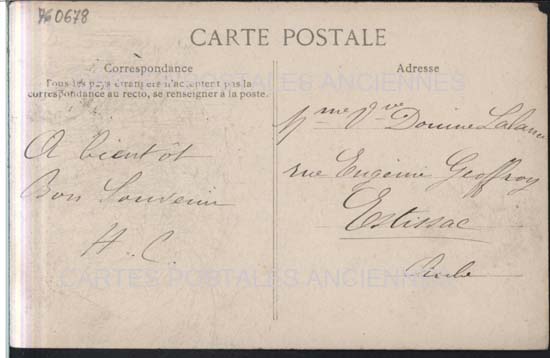 760678
CARTE POSTALE
Correspondance
Tous les pays étrangers n'acceptent pas la
correspondance au recto, se renseigner à la poste.
A bientôt
Bon Souvenir
H. C.
Adresse
Mme Vve
rue Eugénie Geoffroy
Estissac
Aube
CARTES POSTALES ANCIENNES
CARTES POSTALES ANCIENNES